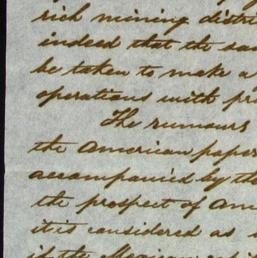 rich mining distri
indeed that the sa
be taken to make a
operations with pr
The rumours
the American paper
accompanied by the
the prospect of Ame
it is considered as
if the Mexican